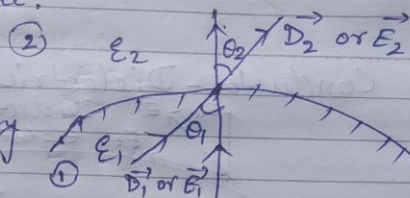 ②
ε₂
θ₂
D₂ or E₂
y
ε₁
θ₁
①
D₁ or E₁